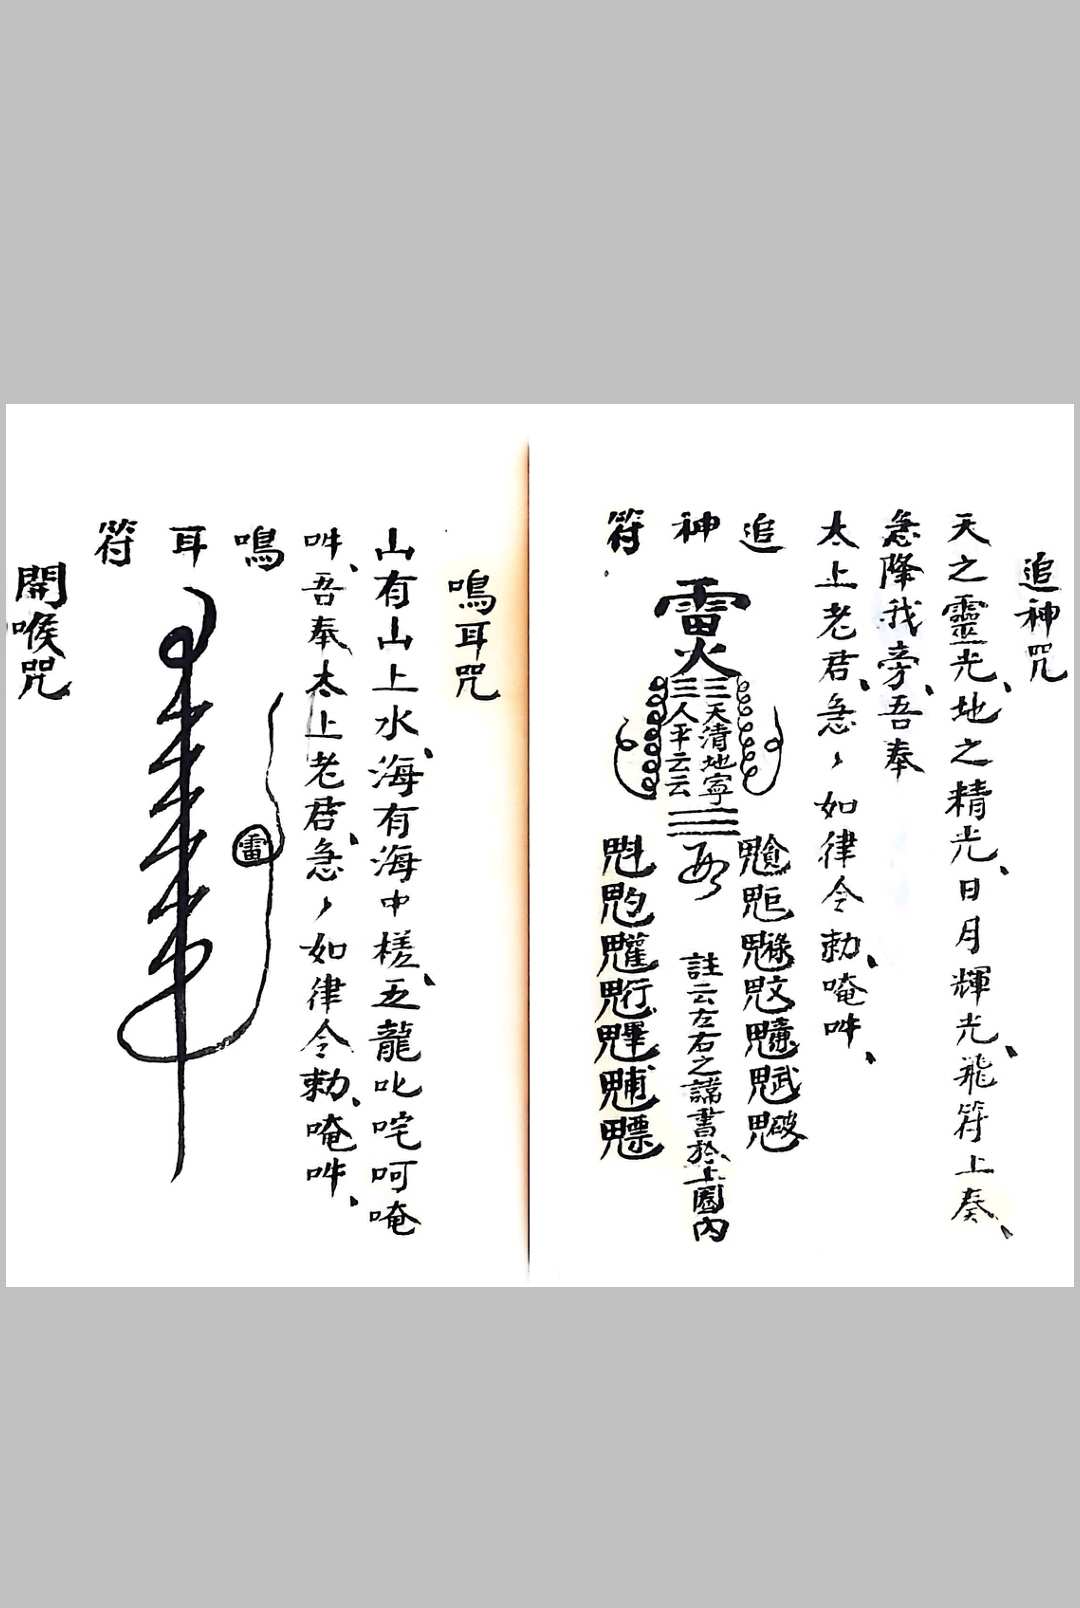 追神咒
天之靈光、地之精光、日月輝光、飛符上奏、
急降我旁、吾奉
太上老君、急々如律令勅、唵吽、
追神符
雷火
三三
天清地寧
人平云云
註云左右之諱書於上圈內
鳴耳咒
山有山上水、海有海中槎、五龍叱咤呵唵
吽、吾奉太上老君、急々如律令勅、唵吽、
鳴耳符
雷
開喉咒